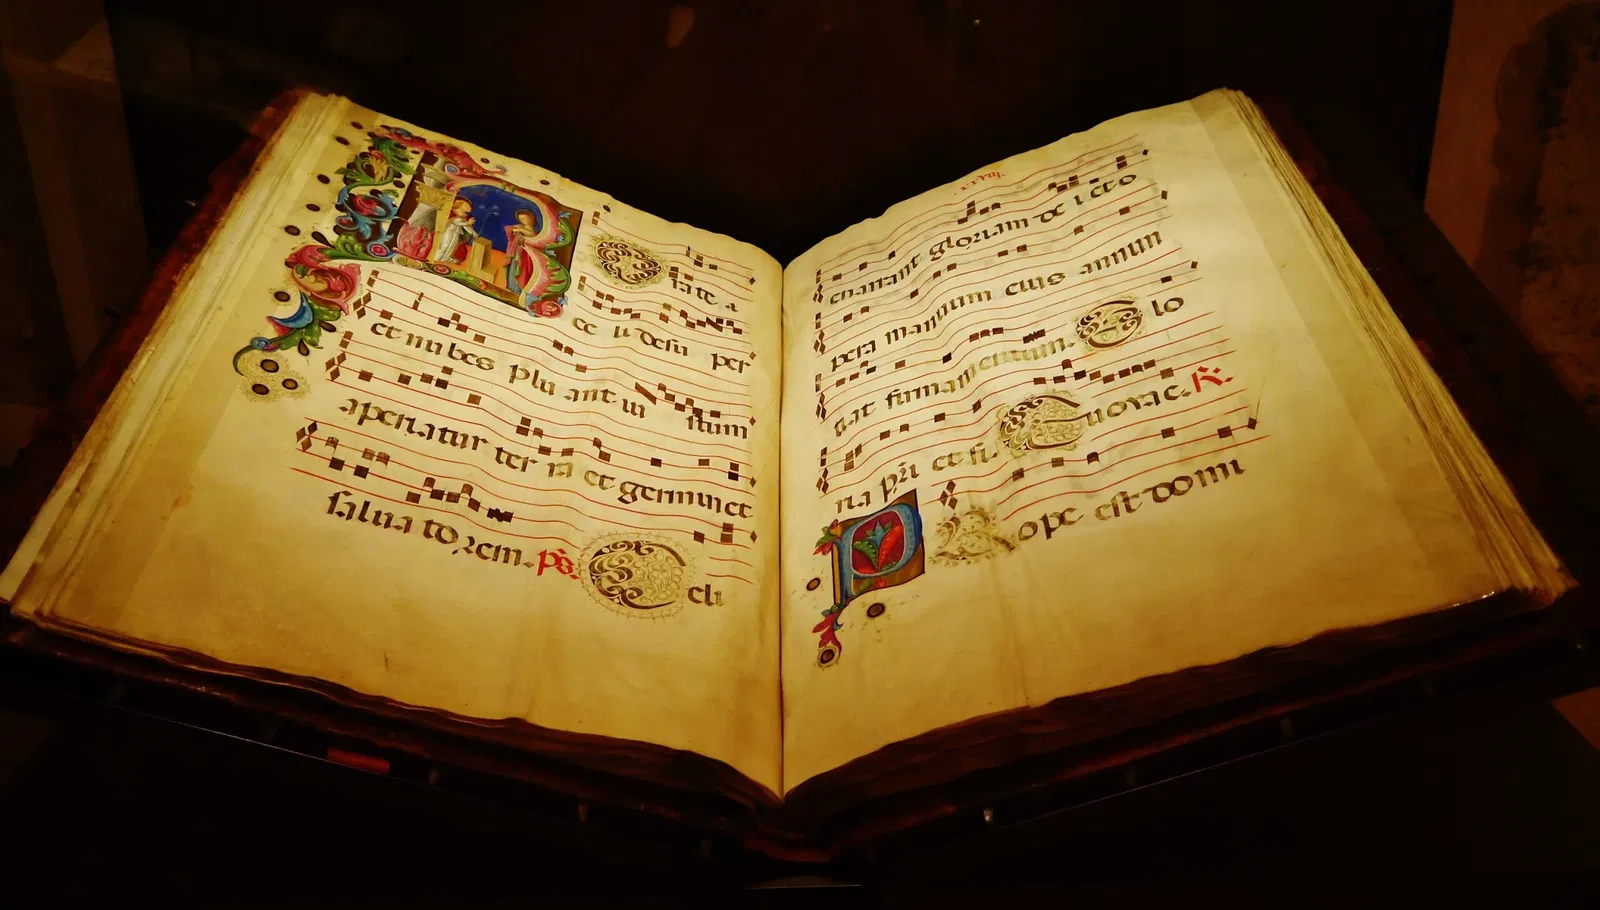 R O rate c
ce li desu per
et nu bes plu ant iu stum
aperiatur ter ra et germinet
salua to rem. ps. C eli
enarrant gloriam de i et o
pera manuum eius annun
tiat firmamentum. G lo
ria pri et fi. E uouae. R.
P R ope est do mi